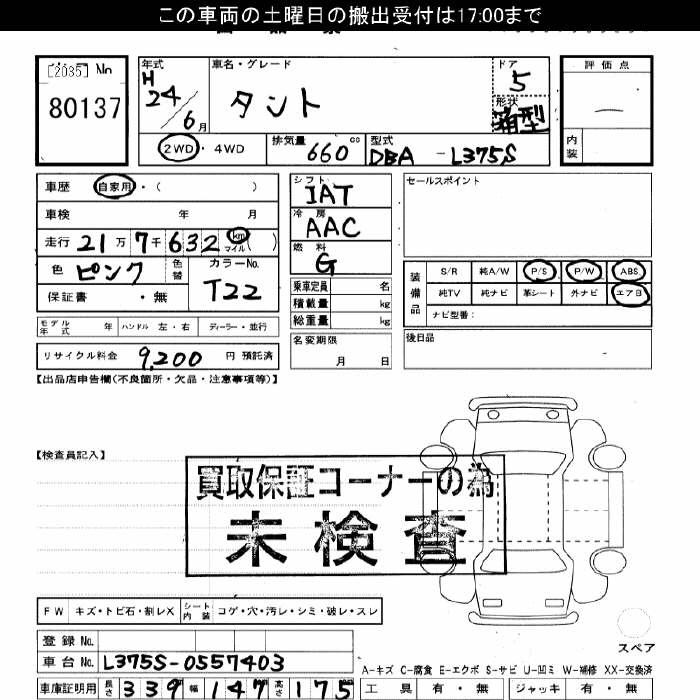 この車両の土曜日の搬出受付は17:00まで
[2035] No
80137
年式 H24/6月
車名・グレード タント
ドア 5
形状 箱型
評価点 —
内装
2WD・4WD
排気量 660 cc
型式 DBA-L375S
車歴 自家用・( )
車検 年 月
走行 21万7千632 km マイル( )
色 ピンク 色替
カラーNo. T22
保証書 ・無
モデル年式 年 ハンドル 左・右 ディーラー・並行
リサイクル料金 9,200 円 預託済
シフト IAT
冷房 AAC
燃料 G
乗車定員 名
積載量 kg
総重量 kg
名変期限 月 日
セールスポイント
装備品
S/R 純A/W P/S P/W ABS
純TV 純ナビ 革シート 外ナビ エアB
ナビ型番:
後日品
【出品店申告欄(不良箇所・欠品・注意事項等)】
【検査員記入】
買取保証コーナーの為
未検査
FW キズ・トビ石・割レX シート内装 コゲ・穴・汚レ・シミ・破レ・スレ
スペア
登録No.
車台No. L375S-0557403
A-キズ C-腐食 E-エクボ S-サビ U-凹ミ W-補修 XX-交換済
車庫証明用 長さ 339 幅 147 高さ 175
工具 有・無 ジャッキ 有・無